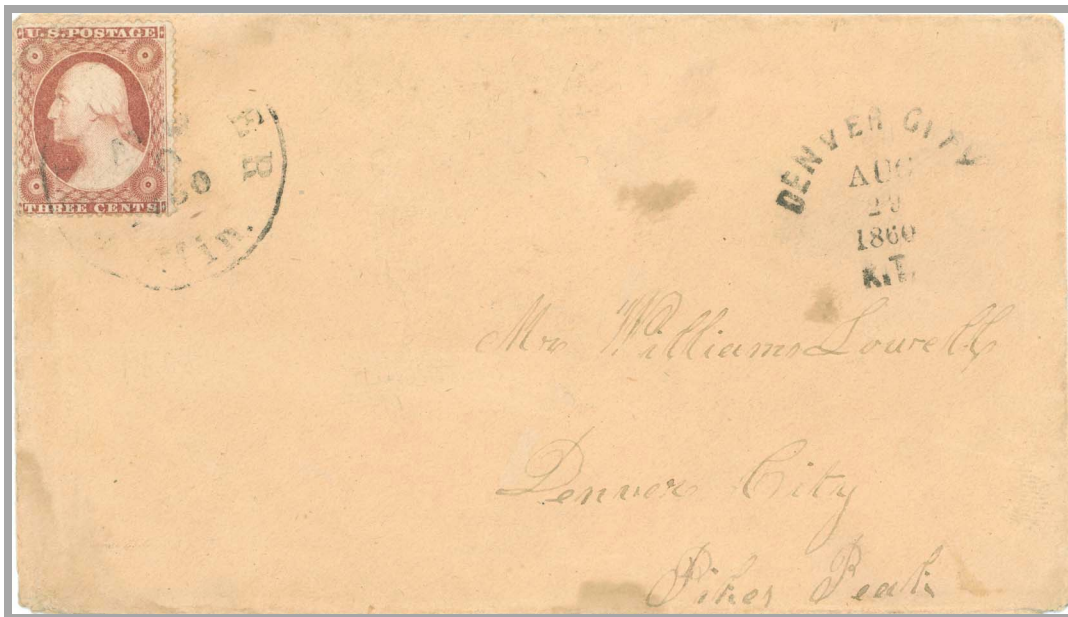 U.S. POSTAGE
THREE CENTS
ER
60
Min.
DENVER CITY
AUG
29
1860
K.T.
Mr William Lowell
Denver City
Pikes Peak